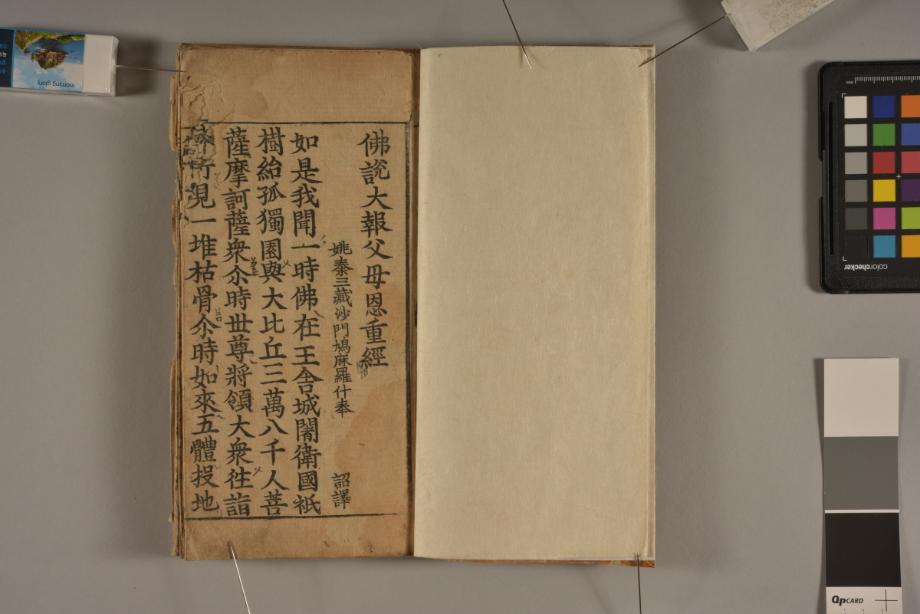 佛說大報父母恩重經
姚秦三藏沙門鳩麻羅什奉 詔譯
如是我聞一時佛在王舍城闍衛國祇
樹給孤獨園與大比丘三萬八千人菩
薩摩訶薩衆尒時世尊將領大衆徃詣
行見一堆枯骨尒時如來五體投地
colorchecker
QPCARD